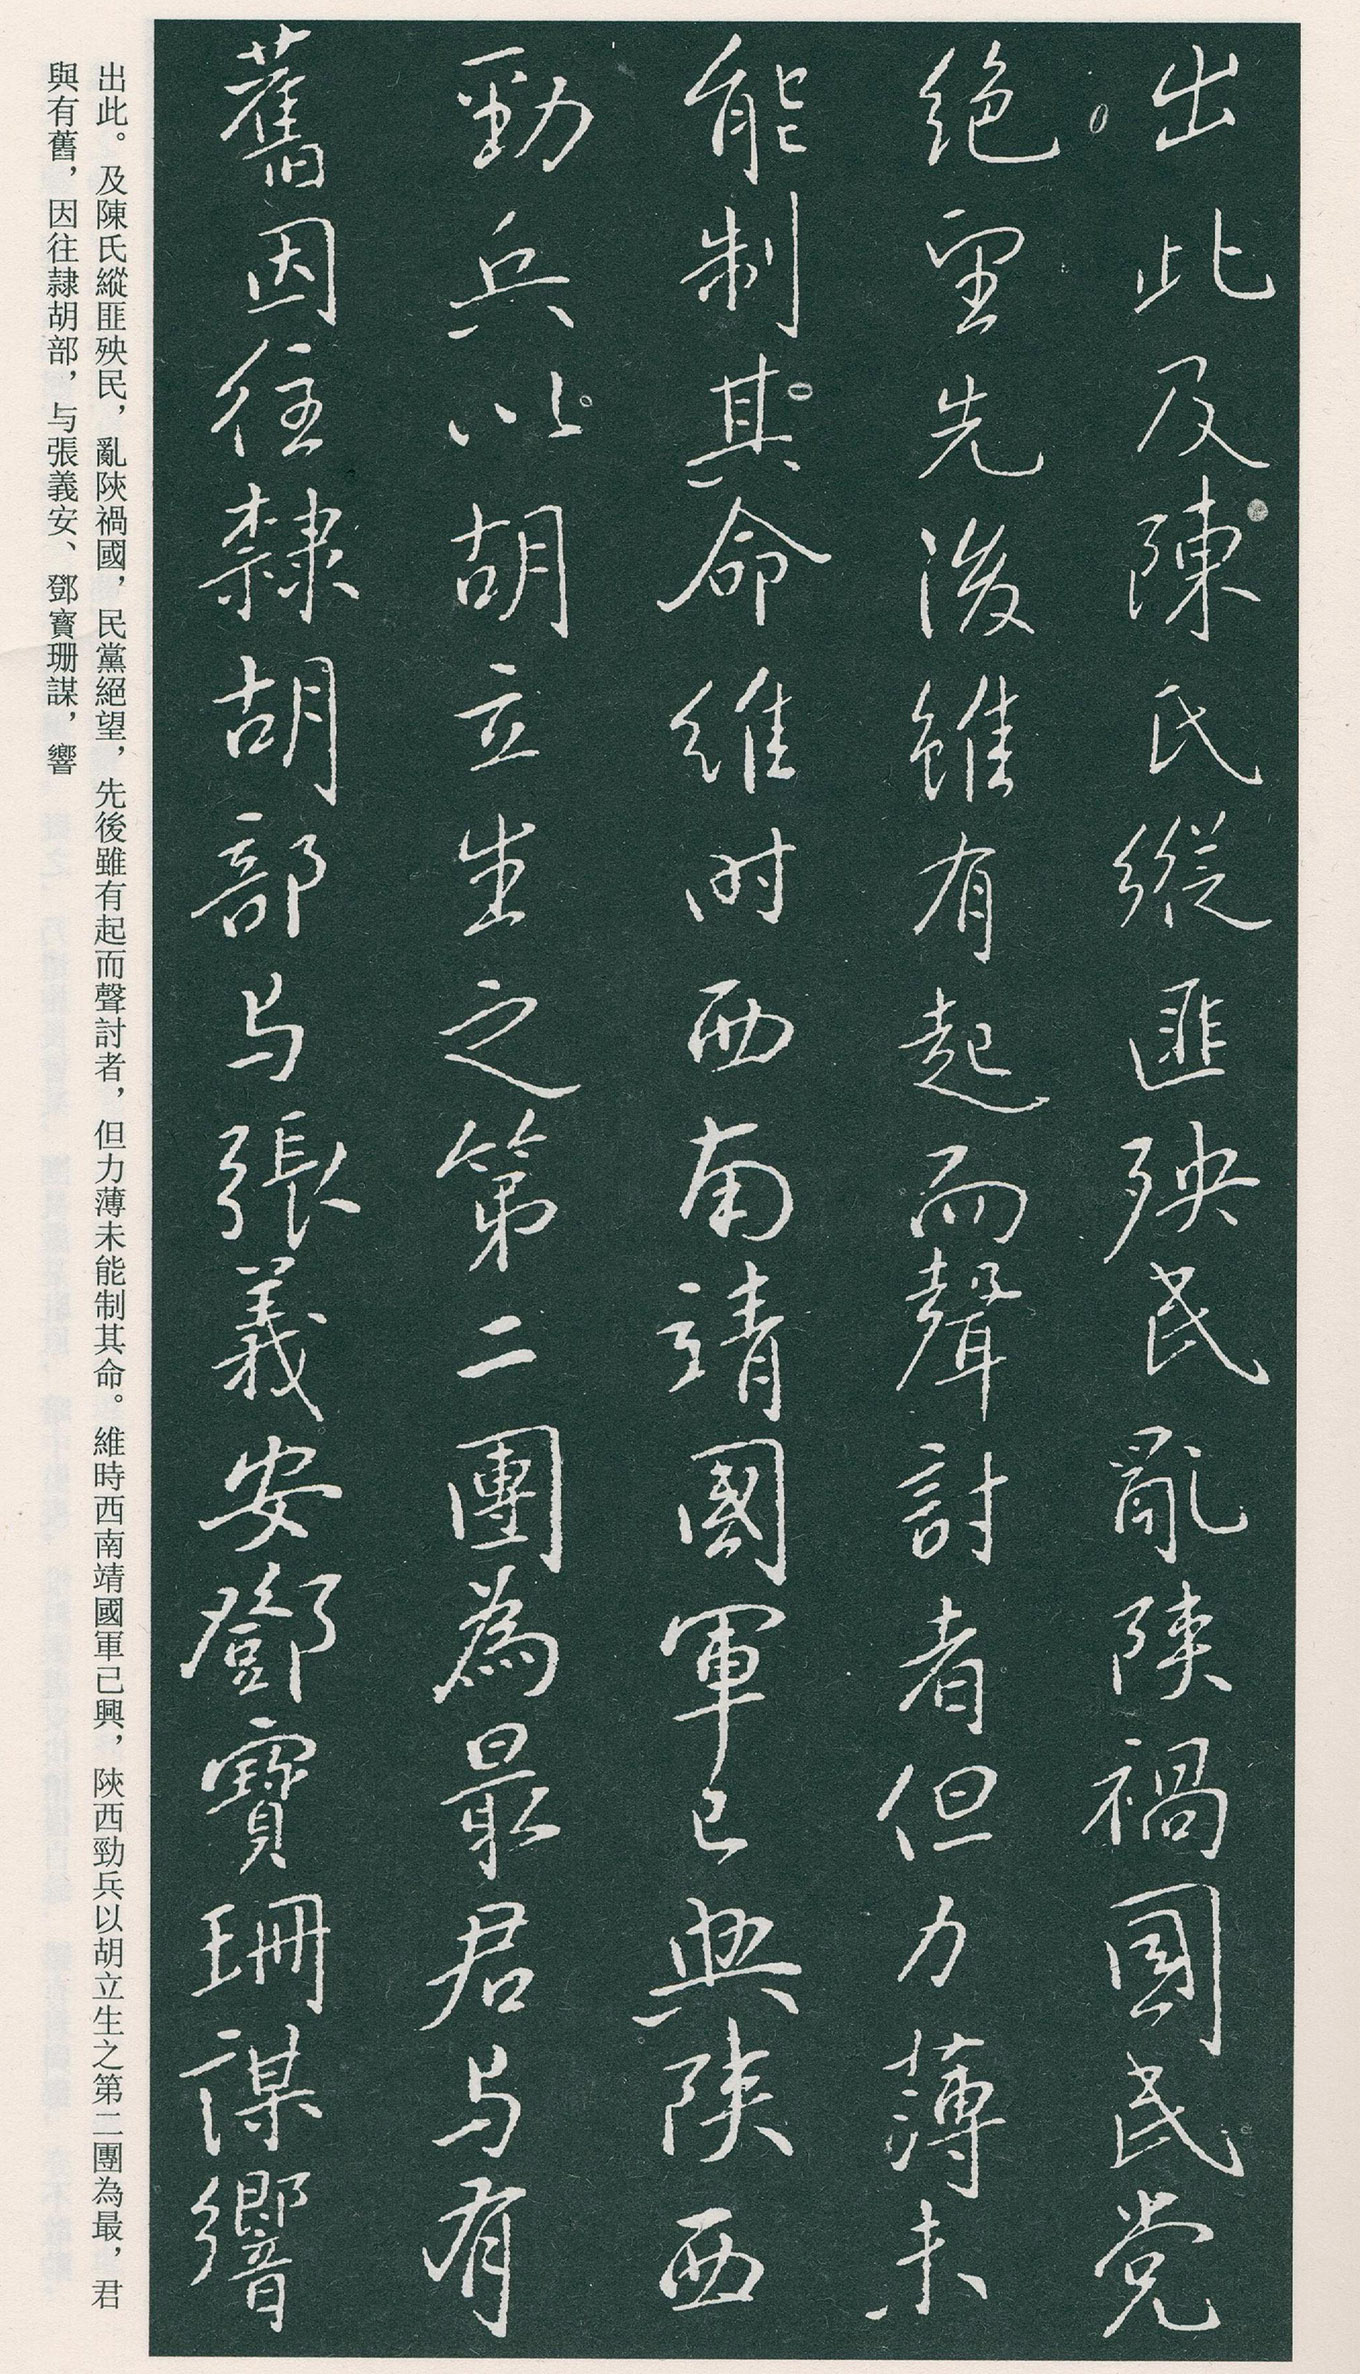 出此及陳氏縱匪殃民亂陝禍國民党
絶望先後雖有起而聲討者但力薄未
能制其命維时西南靖國軍已興陝西
勁兵以胡立生之第二團為最君与有
舊因往隸胡部与張義安鄧寶珊謀響
出此。及陳氏縱匪殃民，亂陝禍國，民黨絕望，先後雖有起而聲討者，但力薄未能制其命。維時西南靖國軍已興，陝西勁兵以胡立生之第二團為最，君
與有舊，因往隸胡部，与張義安、鄧寶珊謀，響